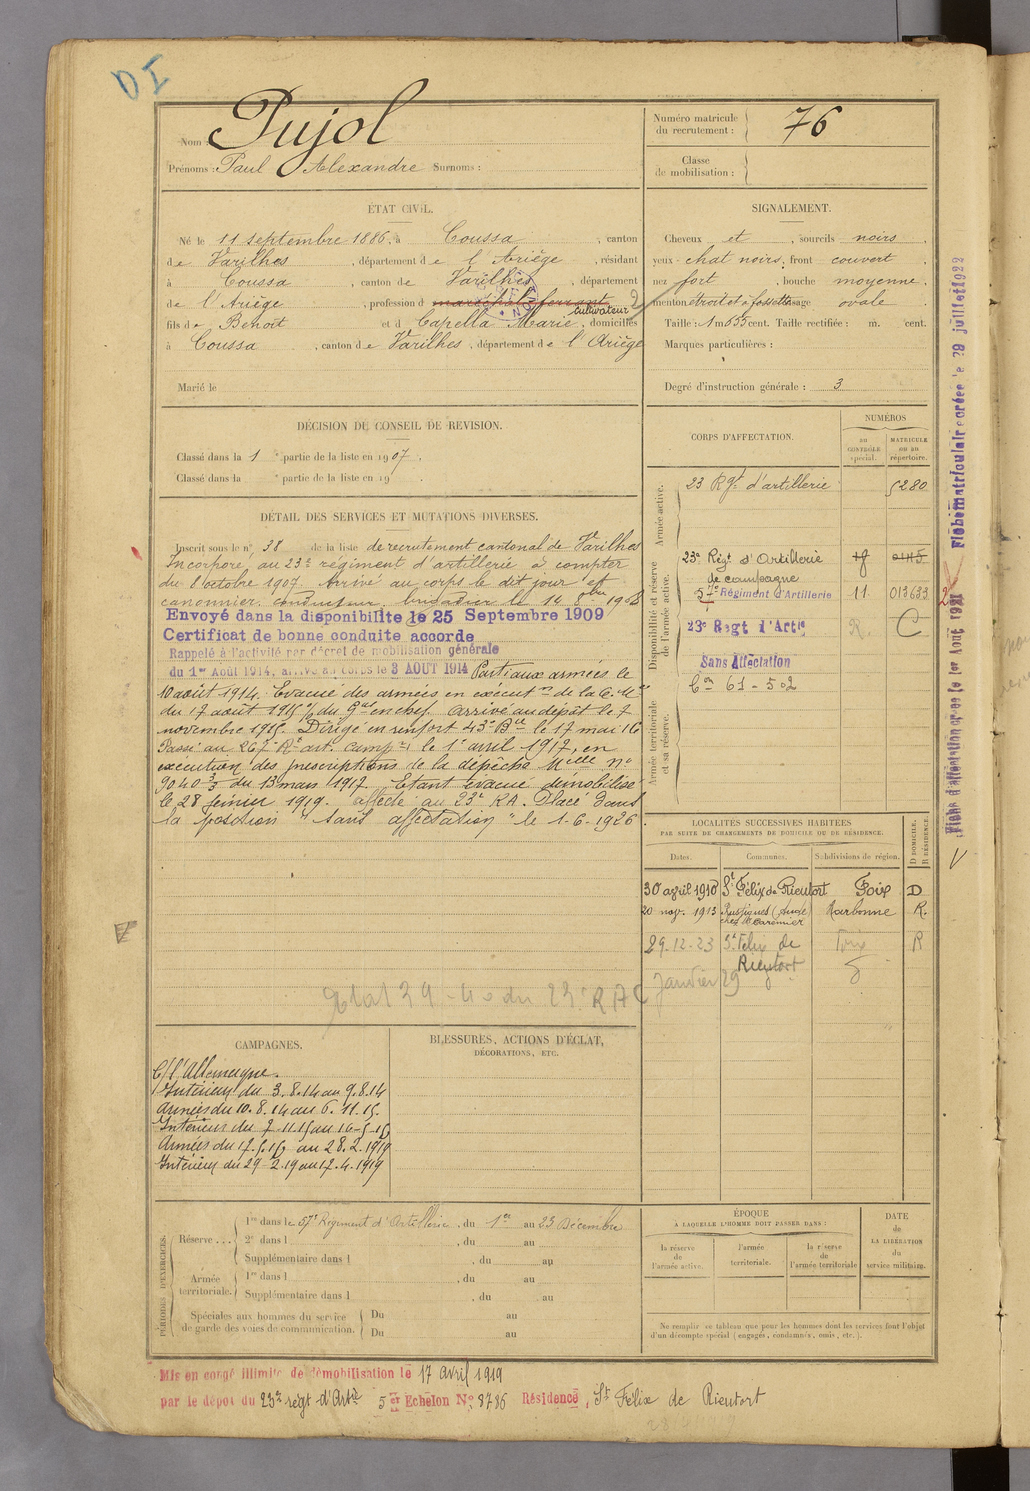 DI
Nom : Pujol
Prénoms : Paul Alexandre Surnoms :
Numéro matricule du recrutement : 76
Classe de mobilisation :
ÉTAT CIVIL.
Né le 11 septembre 1886, à Coussa, canton
de Varilhes, département de l'Ariège, résidant
à Coussa, canton de Varilhes, département
de l'Ariège, profession d maréchal ferrant 2
cultivateur
fils de Benoit et d Capella Marie, domiciliés
à Coussa, canton de Varilhes, département de l'Ariège
Marié le
SIGNALEMENT.
Cheveux et, sourcils noirs,
yeux chat noirs, front couvert
nez fort, bouche moyenne,
menton étroit et à fossette visage ovale
Taille : 1 m 655 cent. Taille rectifiée : m. cent.
Marques particulières :
Degré d'instruction générale : 3
DÉCISION DU CONSEIL DE REVISION.
Classé dans la 1 e partie de la liste en 1907.
Classé dans la e partie de la liste en 19
DÉTAIL DES SERVICES ET MUTATIONS DIVERSES.
Inscrit sous le n° 38 de la liste de recrutement cantonal de Varilhes
Incorporé au 23e régiment d'artillerie à compter
du 8 octobre 1907. Arrivé au corps le dit jour et
canonnier conducteur, brigadier le 14 8bre 1908
Envoyé dans la disponibilité le 25 Septembre 1909
Certificat de bonne conduite accordé
Rappelé à l'activité par décret de mobilisation générale
du 1er Août 1914, arrivé au corps le 3 AOUT 1914 Parti aux armées le
10 août 1914. Evacué des armées en exécut on de la C. Mle
du 17 août 1915 du Gal en chef. Arrivé au dépôt le 7
novembre 1915. Dirigé en renfort 43e Bie le 17 mai 16
Passé au 267e Rt art. camp. le 1er avril 1917, en
exécution des prescriptions de la dépêche Mlle n°
9040 3/3 du 13 mars 1917. Etant évacué démobilisé
le 28 février 1919. affecté au 23e RA. Placé dans
la position "sans affectation" le 1-6-1926
Etat 39-40 du 23e RAC
CORPS D'AFFECTATION.
NUMÉROS
au CONTRÔLE spécial.
MATRICULE ou au répertoire.
Armée active.
23 Rgt d'artillerie 5280
Disponibilité et réserve de l'armée active.
23e Régt d'Artillerie de campagne 18 0145
57e Régiment d'Artillerie 11 013633 2
23e Régt d'Artie R. C
Sans Affectation
Con 61-502
Armée territoriale et sa réserve.
Fiche matriculaire créée le 29 juillet 1922
Fiche d'affectation créée le 1er Août 1921
V
LOCALITÉS SUCCESSIVES HABITÉES
PAR SUITE DE CHANGEMENTS DE DOMICILE OU DE RÉSIDENCE.
Dates. Communes. Subdivisions de région. D DOMICILE. R RÉSIDENCE.
30 avril 1910 St Félix de Rieutort Foix D
20 nov. 1913 (Aude) Narbonne R.
29-12-23 St Félix de Rieutort Foix R
Janvier 29
CAMPAGNES.
C/ l'Allemagne.
Intérieur du 3.8.14 au 9.8.14
Armées du 10.8.14 au 6.11.15
Intérieur du 7-11.15 au 16-5-16
Armées du 17.5.16 au 28.2.1919
Intérieur du 29-2.19 au 17.4.1919
BLESSURES, ACTIONS D'ÉCLAT,
DÉCORATIONS, ETC.
PÉRIODES D'EXERCICES.
Réserve ... 1re dans le 57e Régiment d'Artillerie, du 1er au 23 Décembre
2e dans l , du au
Supplémentaire dans l , du au
Armée territoriale. 1re dans l , du au
Supplémentaire dans l , du au
Spéciales aux hommes du service de garde des voies de communication. Du au
Du au
ÉPOQUE
À LAQUELLE L'HOMME DOIT PASSER DANS :
la réserve de l'armée active.
l'armée territoriale.
la réserve de l'armée territoriale
DATE de LA LIBÉRATION du service militaire.
Ne remplir ce tableau que pour les hommes dont les services font l'objet
d'un décompte spécial (engagés, condamnés, omis, etc.).
Mis en congé illimité de démobilisation le 17 avril 1919
par le dépôt du 23e régt d'Artie 5 er Echelon N° 8786 Résidence, St Félix de Rieutort